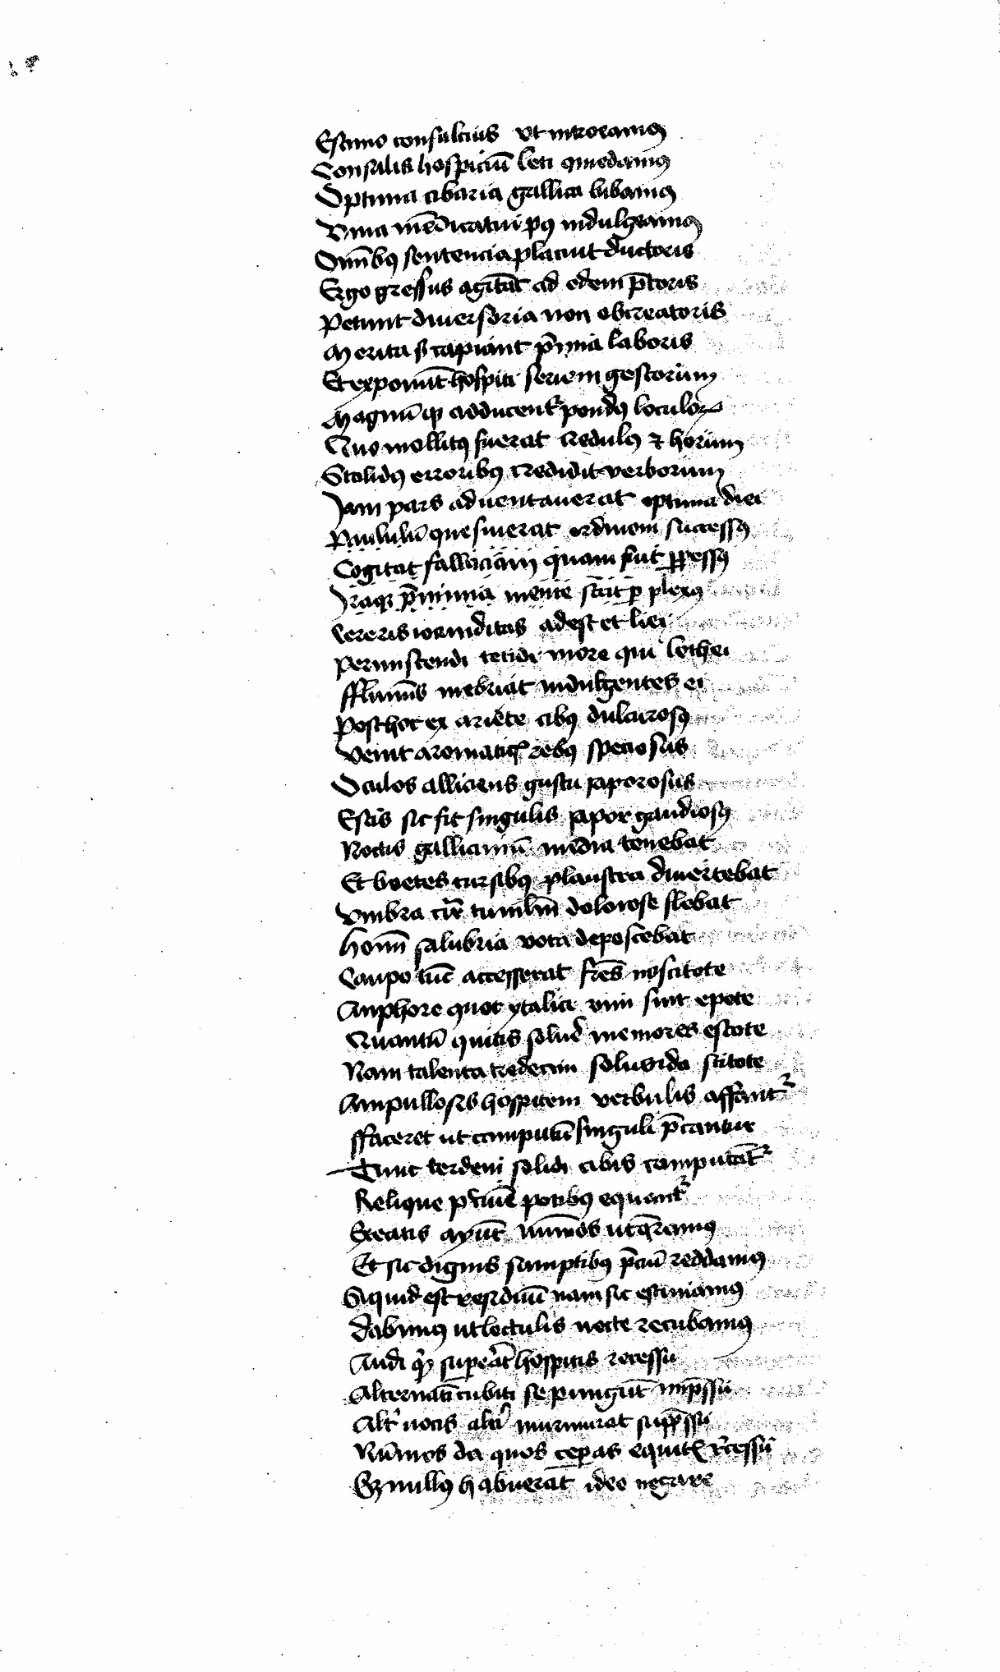 Estimo consulcius vt introeamus
Consulis hospiciū leti quiedamus
Optima cibaria gallica bibamus
Vina mēdicatur pꝰ indulgeamus
Om̄ibꝰ sentencia placuit ductoris
Ergo gressus agitāt ad edem p̄toris
Petunt diuersoria non obcreatoris
Merita ꝫ capiant p̄mia laboris
Et exponūt hospiti seriem gestorum
Magnū qꝫ adducent pondꝰ loculoꝝ
Quo mollitꝰ fuerat credulꝰ ⁊ horum
Stolidꝰ erroribꝰ credidit verborum
Jam pars aduentauerat optima diei
Paululū que fuerat ordinem successꝰ
Cogitat fallaciam quam fuit ꝑpessꝰ
Iraqꝫ p̄nimia mente stetit ꝑplexꝰ
Cereris iocunditas adest et liei
Permiscendi tetidi more qui lethei
Flumīs inebriat indulgentes ei
Posthoc ex ariete cibꝰ dulcurosꝰ
Venit aromaticꝭ rebꝰ speciosus
Oculos alliciens gustu saporosus
Escis sic fit singulis sapor gaudiosꝰ
Noctis galliciniū media tenebat
Et boetes cursibꝰ plaustra diuertebat
Vmbra cir̄ tumulū dolorose flebat
Hoīm salubria vota deposcebat
Caupo tūc accesserat fr̄es noscitote
Anphore quot ytalici vini sunt epote
Quantū quitis soluē memores estote
Nam talenta tredecim solus ido scitote
Ampullosis hospitem verbulis affantʳ
Faceret ut computū singuli p̄cantur
Tunc terdeni solidi cibis computātʳ
Relique potibꝰ equantʳ
Steatis ayūt nūmos ut q̄ramus
Et sic dignis sumptibꝰ p̄ciū reddamus
Siquid est residuū nam sic estimamus
Dabimꝰ ut lectulis nocte recubamus
Audi superāt hospitis recessu
Alternatī cubiti se pungūt imp̄ssu
Altʳ uocis altʳi murmurat supp̄ssu
Nūmos da quos ceperas equitꝭ recessū
Sꝫ nullꝰ habuerat ideo negare